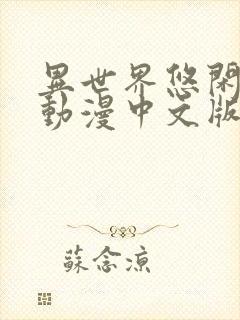 異世界悠閑
動漫中文版
蘇念涼